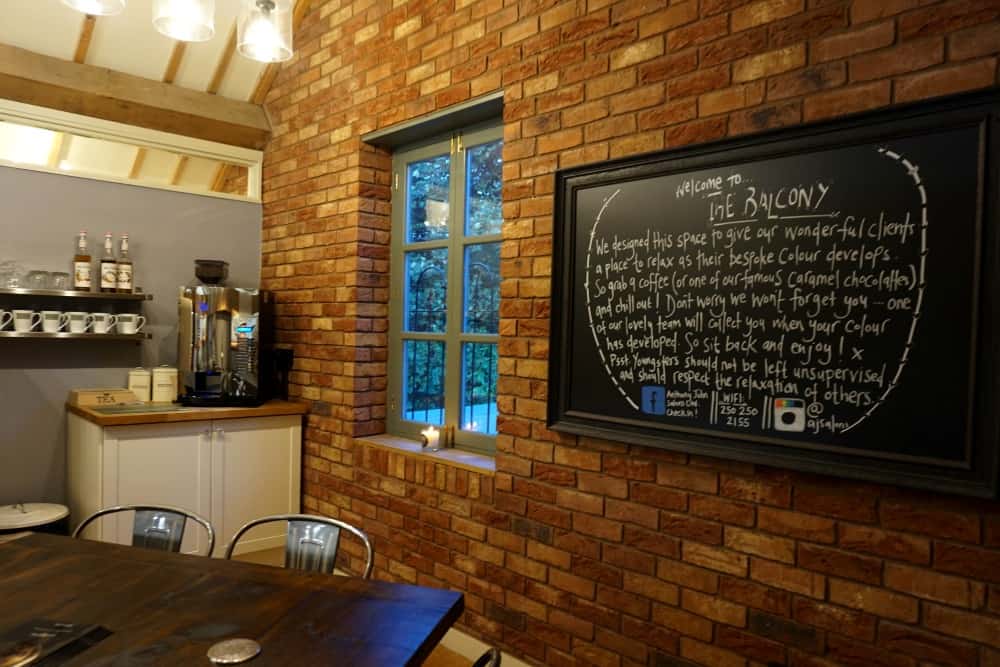 Welcome to...
THE BALCONY
We designed this space to give our wonderful clients
a place to relax as their bespoke colour develops.
So grab a coffee (or one of our famous Caramel chocolattes)
and chill out! Dont worry we wont forget you ... one
of our lovely team will collect you when your colour
has developed. So sit back and enjoy! x
Psst Youngsters should not be left unsupervised
and should respect the relaxation of others.
f
Anthony John
Salons
Check in!
WIFI:
250 250
2155
@
ajsalons
TEA